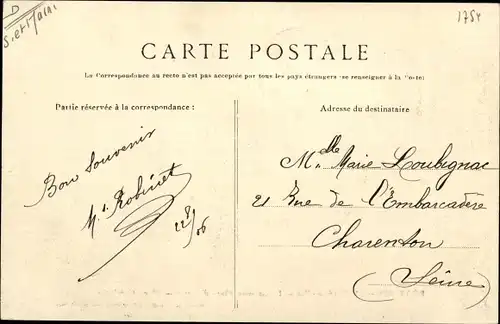 D
S. et Marne
1754
CARTE POSTALE
La Correspondance au recto n'est pas acceptée par tous les pays étrangers (se renseigner à la Poste)
Partie réservée à la correspondance :
Adresse du destinataire
Bon Souvenir
M. Robinet
22/8/06
Mlle Marie Loubignac
21 Rue de l'Embarcadère
Charenton
(Seine)